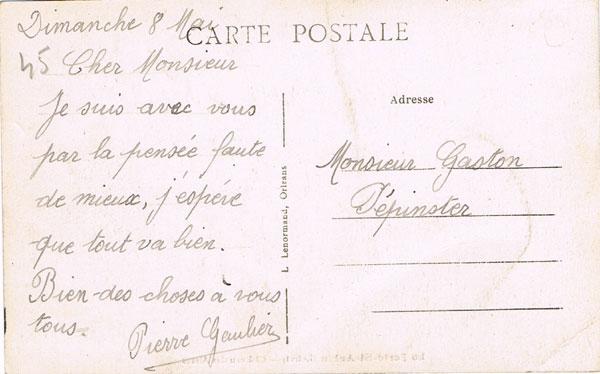 Dimanche 8 Mai
CARTE POSTALE
45
Cher Monsieur
Je suis avec vous
par la pensée faute
de mieux, j'éspére
que tout va bien.
Bien-des choses à vous
tous.
Pierre Gaubier
L. Lenormand, Orléans
Adresse
Monsieur Gaston
Pépinster